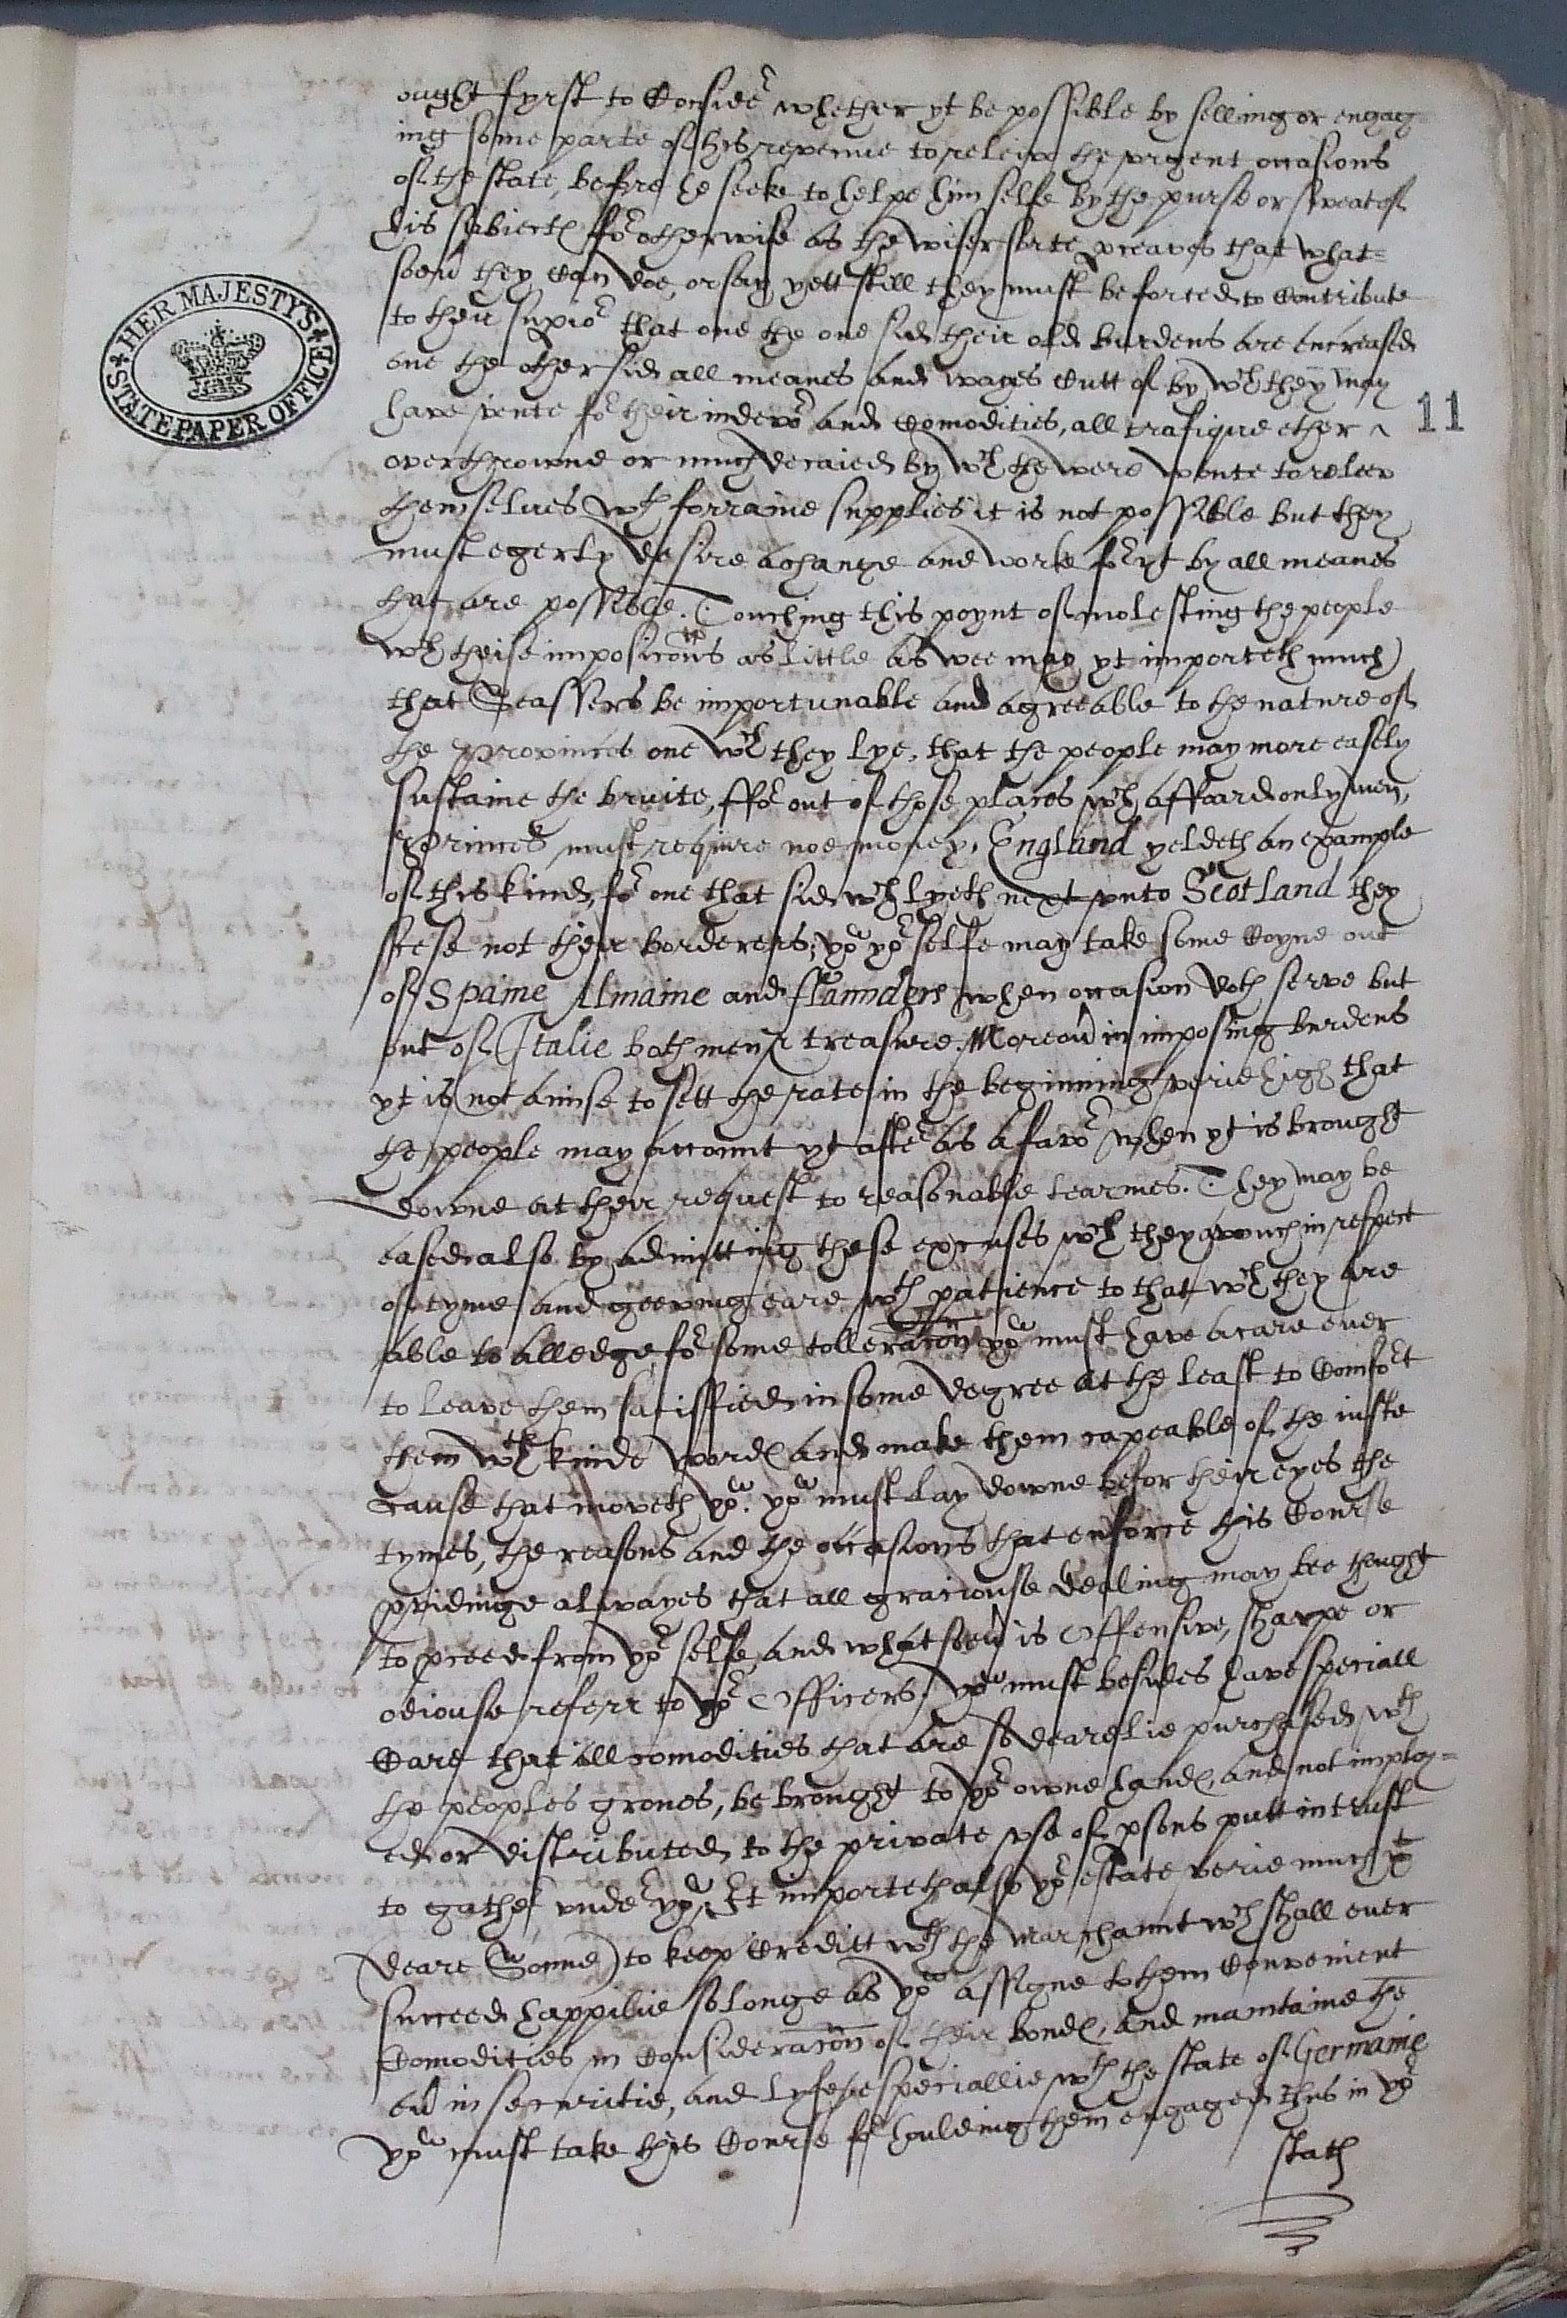 ought fyrst to Conside^r whether yt be possible by selling or engag=
ing some parte of his revenue to releive the urgent occasions
of the state, before he seeke to helpe him selfe by the purse or sweat of
his subiects fo^r otherwise as the wiser sorte that what=
soeu^r they Can doe, or say yett still they must be forced to Contribute
to their sup^rio^r that one the one side their old burdens are encreased
one the other side all meanes and wayes Cutt of by w^ch they may
have vente fo^r their and Comodities, all trafique ether
overthrowne or much decaied by w^ch the were wonte to releev
themselves w^th forraine supplies it is not possible but they
must egerly desire a change and worke fo^r yt by all meanes
that are possible. Touching this poynt of molesting the people
w^th theise imposic̃ons as little as wee may yt importeth much
that Seassers be importunable and agreeable to the nature of
the Provinces one w^ch they lye, that the people may more easely
sustaine the bruite, ffo^r out of those places w^ch affoard only men,
Princes must require noe money, England yeldeth an example
of this kinde, fo^r one that side w^ch lyeth next unto Scotland they
sese not their borderers; yo^u yo^r selfe may take some Coyne out
of Spaine Almaine and Flaunders when occasion doth serve but
out of Italie both men & treasure. Moreou^r in imposing burdens
yt is not amise to sett the rate in the beginning verie high that
the people may account yt afte^r as a favo^r when yt is brought
downe at their request to reasonable tearmes. They may be
eased also by admitting these excuses w^ch they avouch in respect
of tyme and geeving eare w^th patience to that w^ch they are
able to alledge, fo^r some tollerac̃on yo^u must have a care ever
to leave them satisffied in some degree at the least to Comfo^rt
them w^th kinde words and make them capeable of the iuste
Cause that moveth yo^u. yo^u must lay downe befor their eyes the
tymes, the reasons and the occasions that enforce this Course
p^rvidinge alwayes that all graciouse dealing may bee thought
to p^rceed from yo^r selfe, and whatsoeu^r is Offensive, sharpe or
odiouse referr to yo^r Officers, yo^u must besides have speciall
Care that all comodities that are so dearelie purchased w^th
the peoples grones, be brought to yo^r owne hands, and not imploy=
ed or distributed to the private use of p^rsons putt in trust
to gathe^r unde^r yo^u, It importeth also yo^r estate verie much
(deare Sonne) to keep Creditt w^th the marchannt w^ch shall ever
succeed happilie so longe as yo^u assigne to them Convenient
Comodities in Considerac̃on of their bonds, and maintaine the
in securitie, and lyfe, especiallie w^th the state of Germanie
yo^u must take this Course fo^r houlding them engaged thus in yo^r
stats
11
HER MAJESTY'S STATE PAPER OFFICE